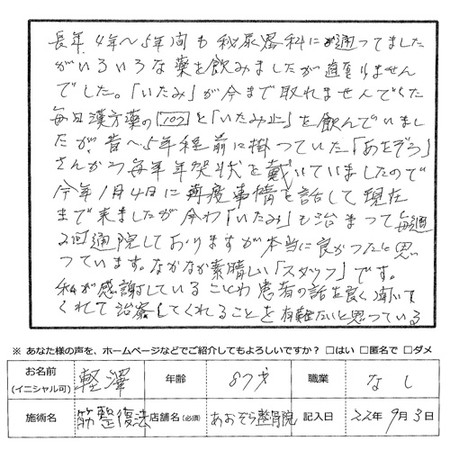 長年4年～5年間も泌尿器科に通ってました
がいろいろな薬を飲みましたが直りません
でした。「いたみ」が今まで取れませんでした
毎日漢方薬の107と「いたみ止」を飲んでいまし
たが、昔～5年程前に掛っていた「あおぞら」
さんから毎年年賀状を戴いていましたので
今年1月4日に再度事情を話して現在
まで来ましたが今わ「いたみ」も治まって毎週
2回通院しておりますが本当に良かったと思
っています。なかなか素晴しい「スタッフ」です。
私が感謝していることわ患者の話を良く聞いて
くれて治療してくれることを有難たいと思っている
※ あなた様の声を、ホームページなどでご紹介してもよろしいですか？ □はい □匿名で □ダメ
お名前 (イニシャル可) 軽澤 年齢 87才 職業 なし
施術名 筋整復法 店舗名(必須) あおぞら整骨院 記入日 22年9月3日